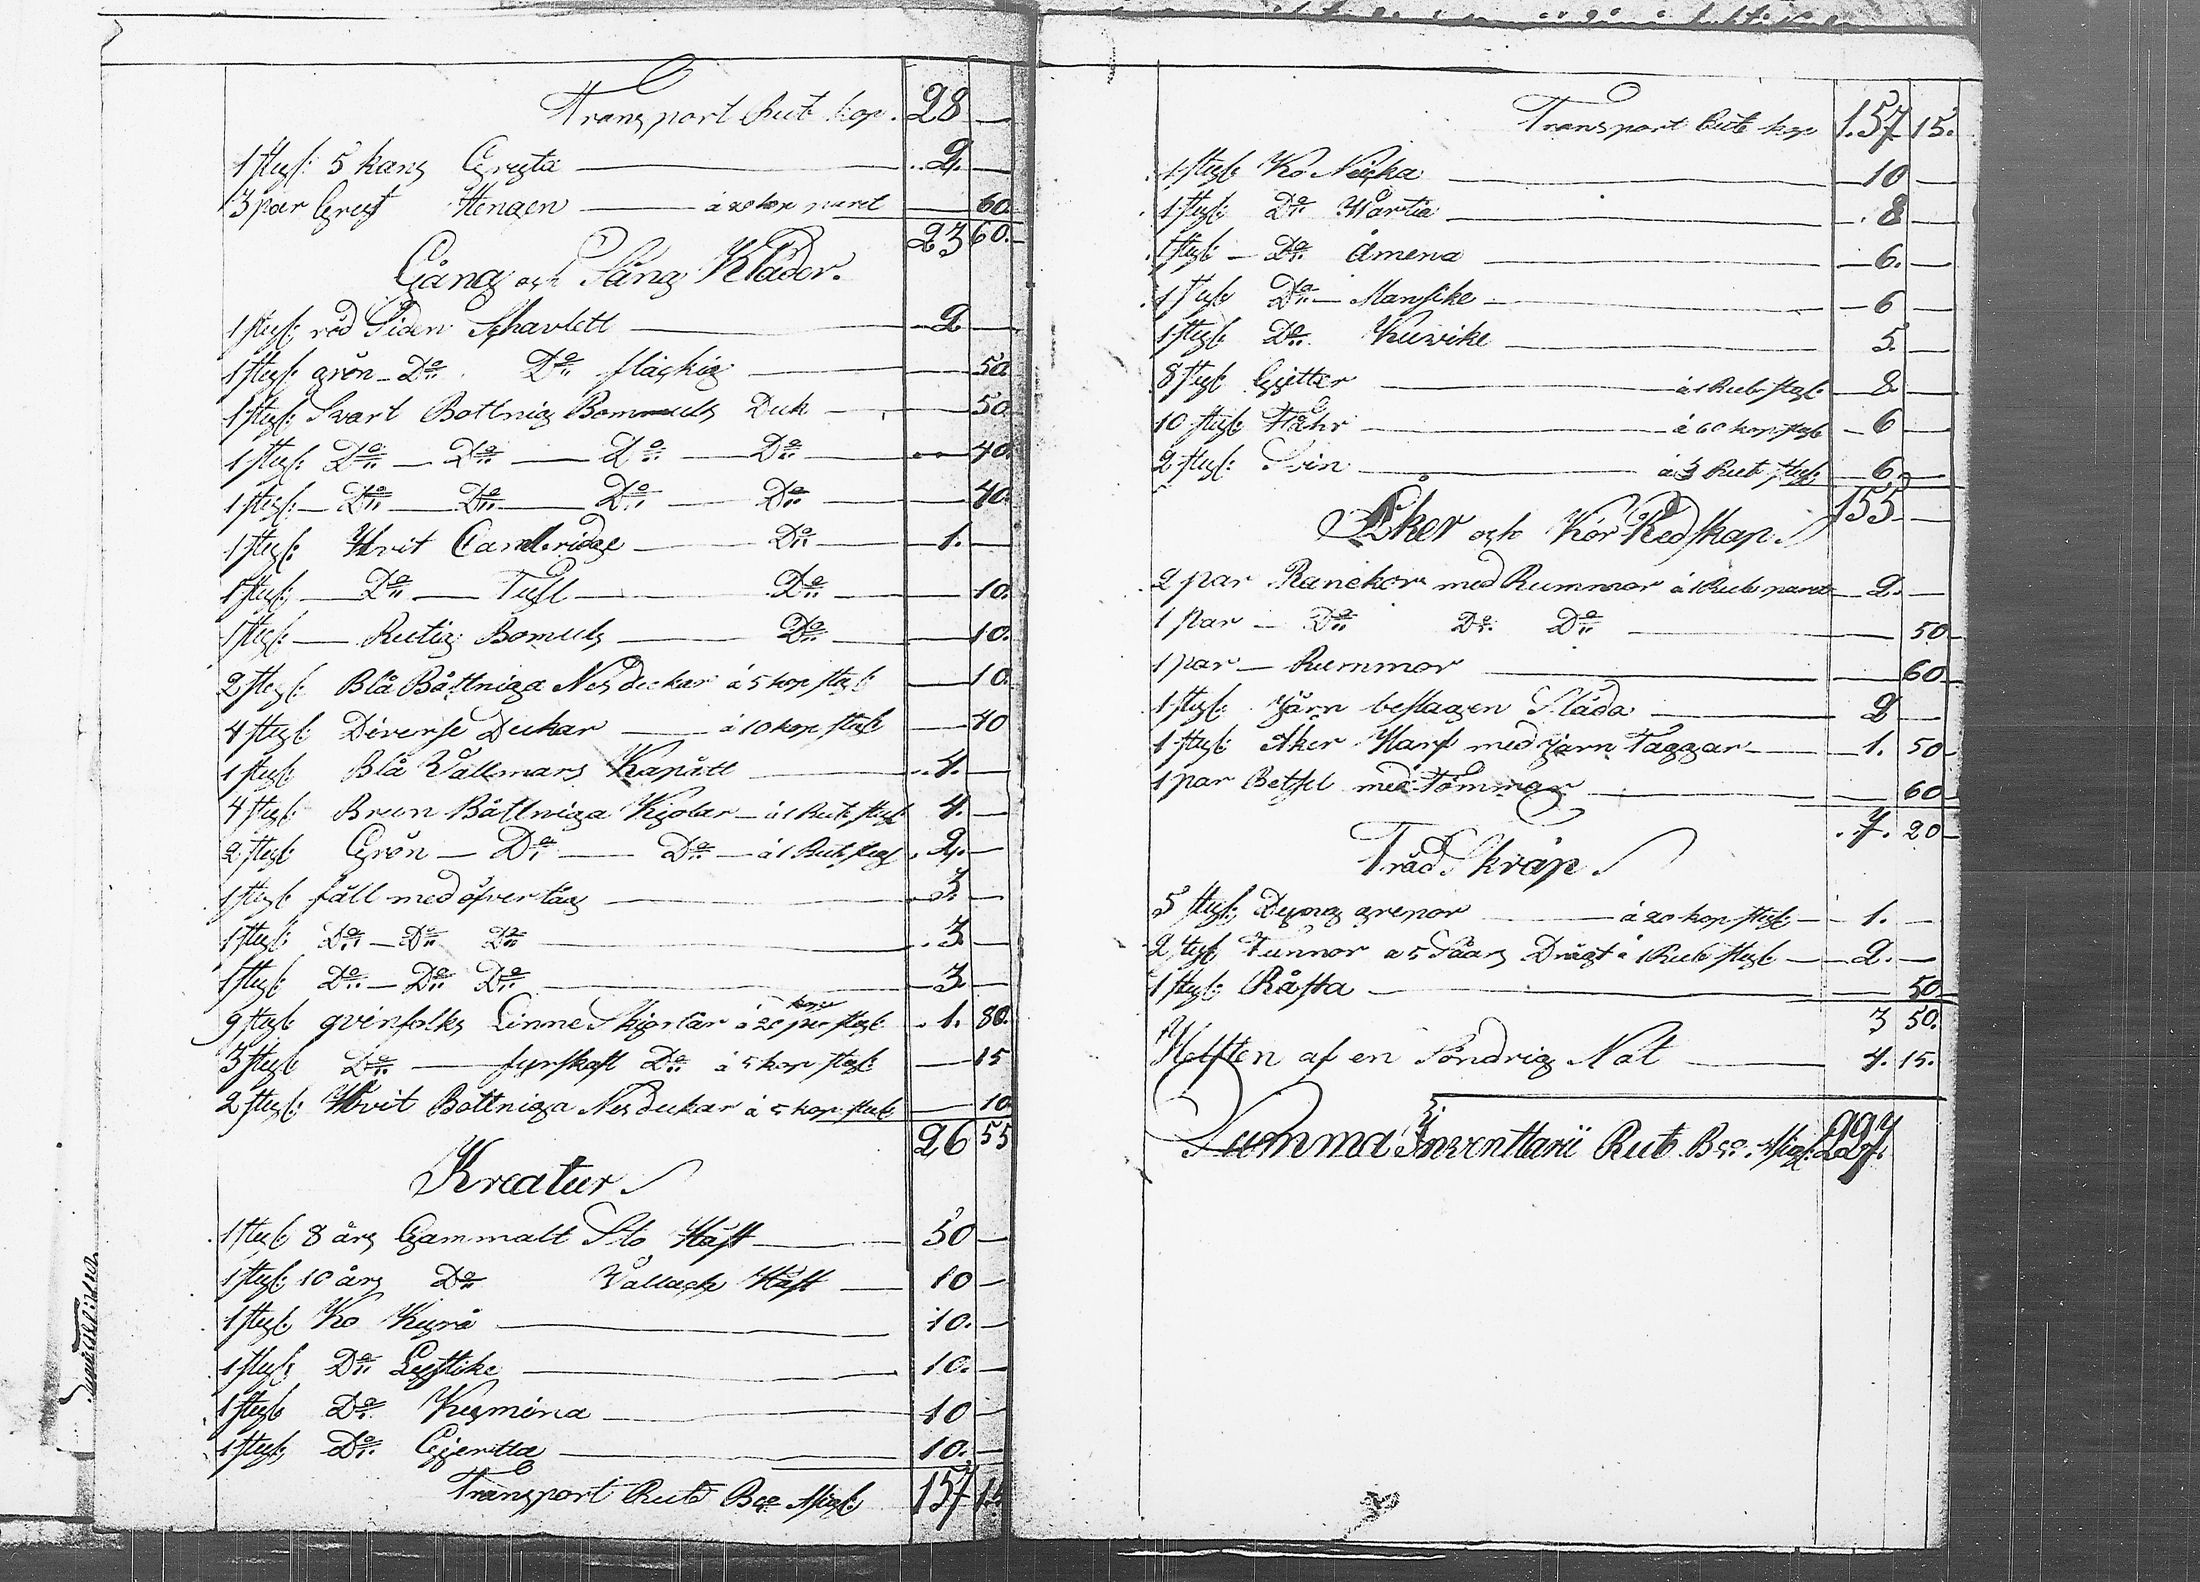 Transport Rub kop. 28 —
1 styk: 5 kans Gryta — 2. —
3 par Gryt Hengen — à 20 kop paret — 60.
23 60.
Gång och Säng Kläder.
1 styk: röd Siden Schavlett — 2 —
1 styk: grön Do Do fläckig — 50.
1 styk: Svart Bottnig Bommuls Duk — 50.
1 styk: Do — Do — Do — Do — 40.
1 styk: Do — Do — Do — Do — 40.
1 styk: Hvit Cambridge — Do — 1. —
1 styk: — Do — Tyll — Do — 10.
1 styk: — Rutig Bomuls — Do — 10.
2 styk: Blå Båttniga Nesdukar à 5 kop styk — 10.
4 styk Diverse Dukar — à 10 kop styk — 40
1 styk Blå Vallmars Kapått — 4. —
4 styk Brun Båttniga Kjolar — à 1 Rub styk 4. —
2 styk Grön — Do — Do — à 1 Rub styk 2. —
1 styk fäll med öfver tåg — 3. —
1 styk: Do — Do Do — 3. —
1 styk Do — Do Do — 3. —
9 styk qvinfolks Linne Skjortär à 20 kop per styk 1. 80.
3 styk Do — fyrskaft Do à 5 kop styk — 15
2 styk: Hvit Bottniga Nesdukar à 5 kop styk — 10
26 55
Kreatur.
1 styk 8 års Gammalt Sto Häst — 50 —
1 styk: 10 års Do Vallack Häst — 10 —
1 styk Ko Kyrå — 10. —
1 styk Do Lystike — 10. —
1 styk Do Kusmina — 10 —
1 styk Do Gjertta — 10. —
Transport Rub Bco Assig: 157 15
Transport Rub kop 157 15.
1 styk Ko Neicka — 10 —
1 styk: Do Wartia — 8 —
1 styk — Do Åmena — 6. —
1 styk Do — Mansike — 6 —
1 styk Do Kuvike — 5. —
8 styk Gjetter — à 1 Rub styk 8. —
10 styk Fåhr — à 60 kop styk 6 —
2 styk: Svin — à 3 Rub styk 6. —
155 —
Åker och Kör Redskap.
2 par Ranckor med Rummor à 1 Rub paret — 2. —
1 par — Do Do Do — 50
1 par — Rummor — 60
1 styk järn beslagen Släda — 2 —
1 styk Åker Harf med järn Taggar — 1. 50
1 par Betsel med Tömmar — 60
7. 20
Träd Skräp.
5 styk: Dyng grepor — à 20 kop styk — 1. —
2 styk Tunnor a 5 Såars Drägt à 1 Rub styk — 2. —
1 styk: Råsta — 50
3 50.
Helften af en Söndrig Nåt — 4. 15.
Summa Inventtarii Rub Bco Assig: 227.